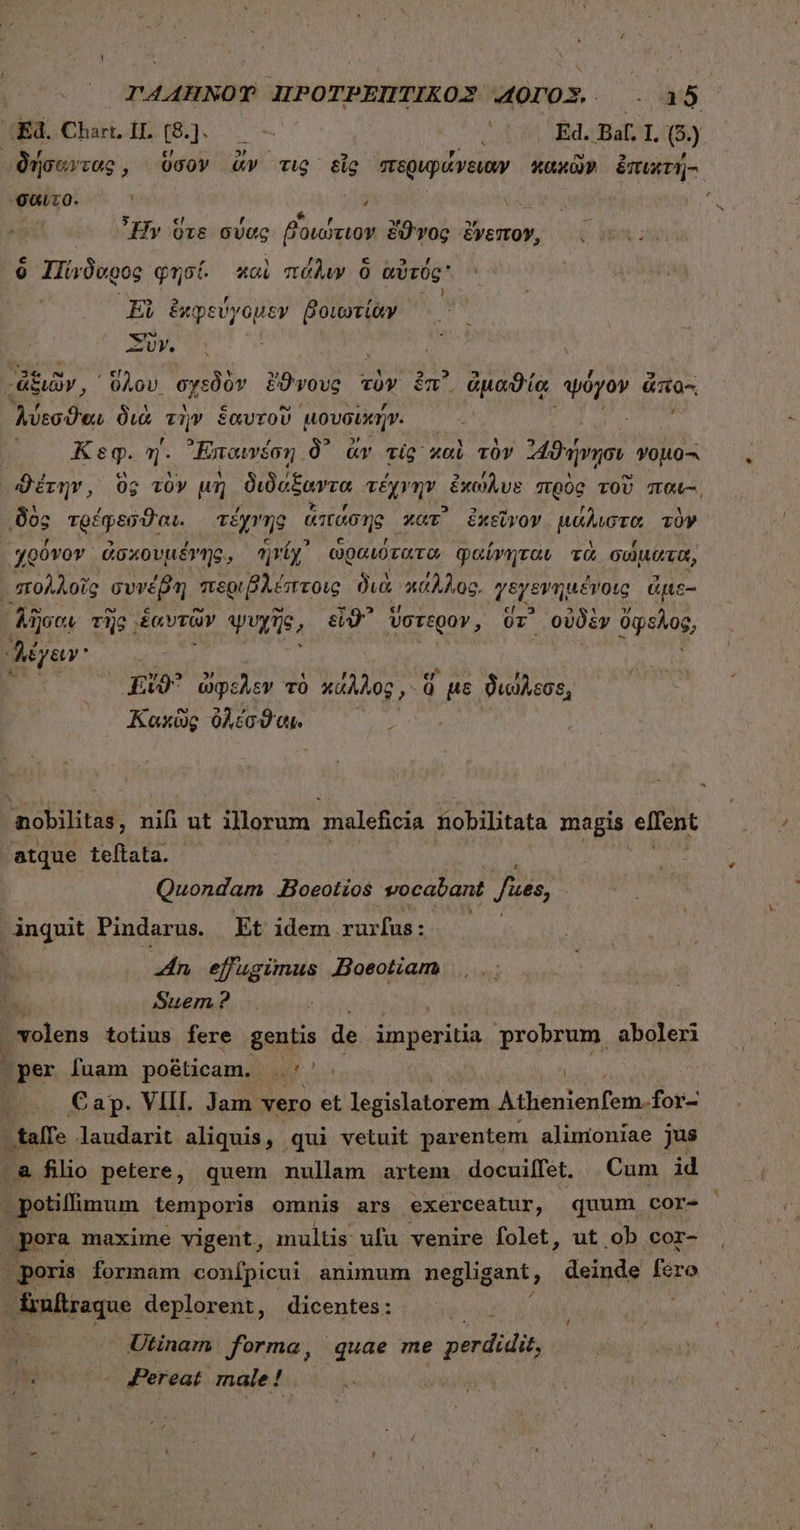 ΓΑΛΗΝΟΥ ΠΡΟΤΡΕΠΤΙΚΟΣ ΛΟΓΟΣ. 15
Ed. Chart. II. [8.]. Ed. Baſ. I. (5.)
δήσαντας, ὅσον ἄν τις εἰς περιφάνειαν κακῶν ἐπικτή-
σαιτο.
Ἦν ὅτε σύας βοιώτιον ἔθνος ἔνεπον,
ὁ Πίνδαρος φησί. καὶ πάλιν ὁ αὐτός·
Εἰ ἐκφεύγομεν βοιωτίαν
Σῦν.
ἀξιῶν, ὅλου σχεδὸν ἔθνους τὸν ἐπ᾽ ἀμαθίᾳ ψόγον ἀπο-
λύεσθαι διὰ τὴν ἑαυτοῦ μουσικήν.
Κεφ. η΄. Ἐπαινέση δ᾽ ἄν τις καὶ τὸν Ἀθήνησι νομο-
θέτην, ὃς τὸν μὴ διδάξαντα τέχνην ἐκώλυε πρὸς τοῦ παι-
δὸς τρέφεσθαι. τέχνης ἁπάσης κατ᾽ ἐκεῖνον μάλιστα τὸν
χρόνον ἀσκουμένης, ἡνίχ᾽ ὡραιότατα φαίνηται τὰ σώματα,
πολλοῖς συνέβη περιβλέπτοις διὰ κάλλος γεγενημένοις ἀμε-
λῆσαι τῆς ἑαυτῶν ψυχῆς, εἶθ᾽ ὕστερον, ὅτ᾽ οὐδὲν ὄφελος,
λέγειν·
Εἴθ᾽ ὤφελεν τὸ κάλλος, ὅ με διώλεσε,
Κακῶς ὀλέσθαι.
nobilitas, niſi ut illorum maleficia nobilitata magis eſſent
atque teſtata.
Quondam Boeotios vocabant ſues,
inquit Pindarus. Et idem rurſus:
An effugimus Boeotiam
Suem?
volens totius fere gentis de imperitia probrum aboleri
per ſuam poëticam.
Cap. VIII. Jam vero et legislatorem Athenienſem for-
taſſe laudarit aliquis, qui vetuit parentem alimoniae jus
a filio petere, quem nullam artem docuiſſet. Cum id
potiſſimum temporis omnis ars exerceatur, quum cor-
pora maxime vigent, multis uſu venire ſolet, ut ob cor-
poris formam conſpicui animum negligant, deinde ſero
fruſtraque deplorent, dicentes:
Utinam forma, quae me perdidit,
Pereat male!